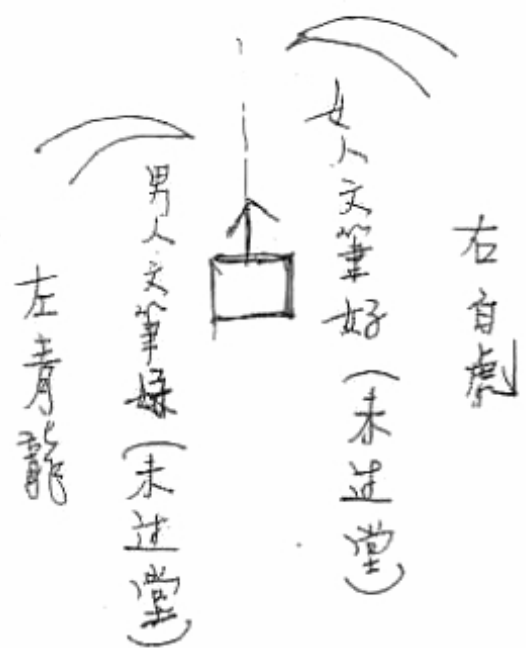 右白虎
女人文筆好(未过堂)
男人文筆好(未过堂)
左青龍